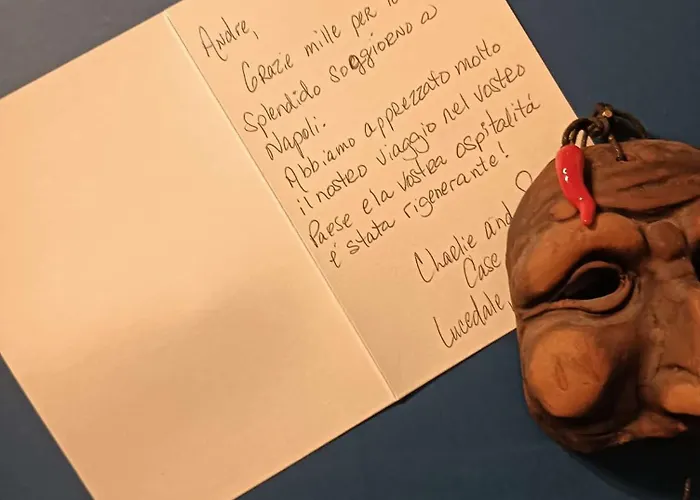 Andre,
Grazie mille per lo
splendido soggiorno a
Napoli.
Abbiamo apprezzato molto
il nostro viaggio nel vostro
Paese e la vostra ospitalità
é stata rigenerante!
Charlie and
Case
Lucedale,